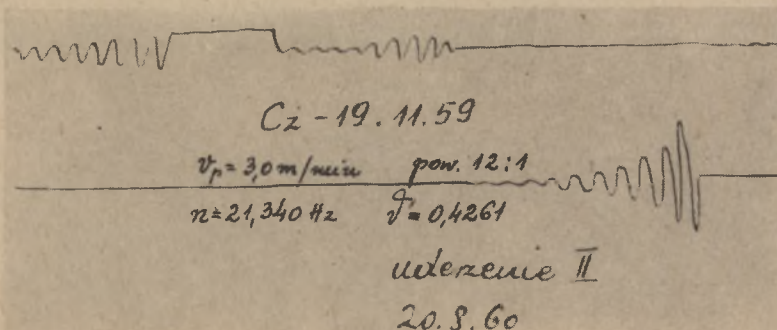 Cz - 19.11.59
vₚ = 3,0 m/min pow. 12:1
n = 21,340 Hz ϑ = 0,4261
uderzenie II
20.9.60